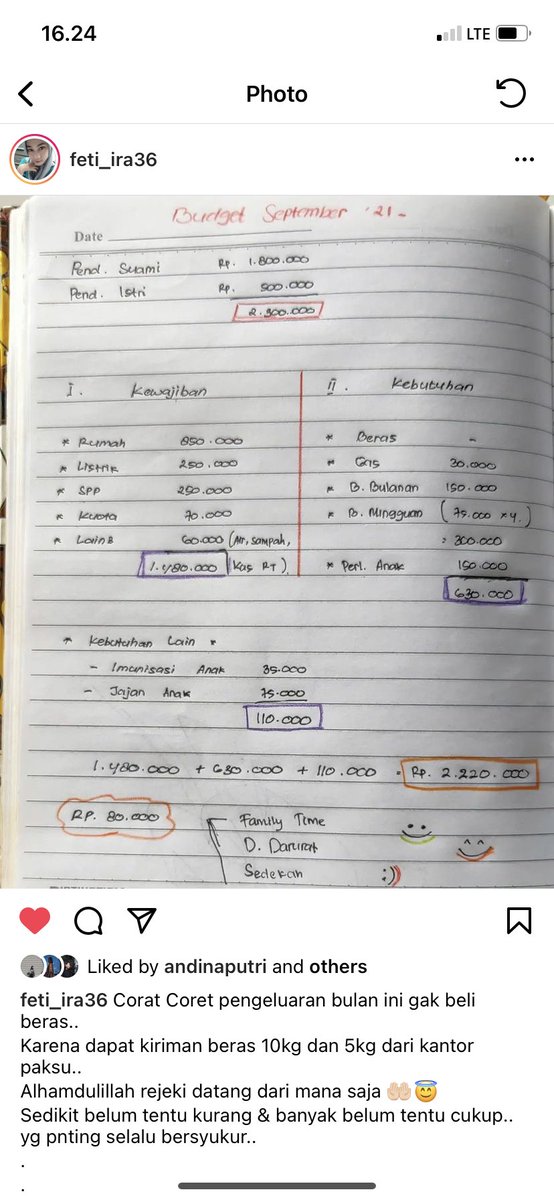 16.24
LTE
Photo
feti_ira36
Budget September '21 -
Date
Pend. Suami Rp. 1.800.000
Pend. Istri Rp. 500.000
2.300.000
I. Kewajiban
* Rumah 850.000
* Listrik 250.000
* SPP 250.000
* Kuota 70.000
* Lain2 60.000 (Air, sampah,
1.480.000 Kas RT)
II. Kebutuhan
* Beras -
* Gas 30.000
* B. Bulanan 150.000
* B. Mingguan (75.000 x 4)
= 300.000
* Perl. Anak 150.000
630.000
* Kebutuhan Lain *
- Imunisasi Anak 35.000
- Jajan Anak 75.000
110.000
1.480.000 + 630.000 + 110.000 = Rp. 2.220.000
RP. 80.000
Family Time
D. Darurat
Sedekah
:))
Liked by andinaputri and others
feti_ira36 Corat Coret pengeluaran bulan ini gak beli
beras..
Karena dapat kiriman beras 10kg dan 5kg dari kantor
paksu..
Alhamdulillah rejeki datang dari mana saja 🤲🏻😇
Sedikit belum tentu kurang & banyak belum tentu cukup..
yg pnting selalu bersyukur..
.
.